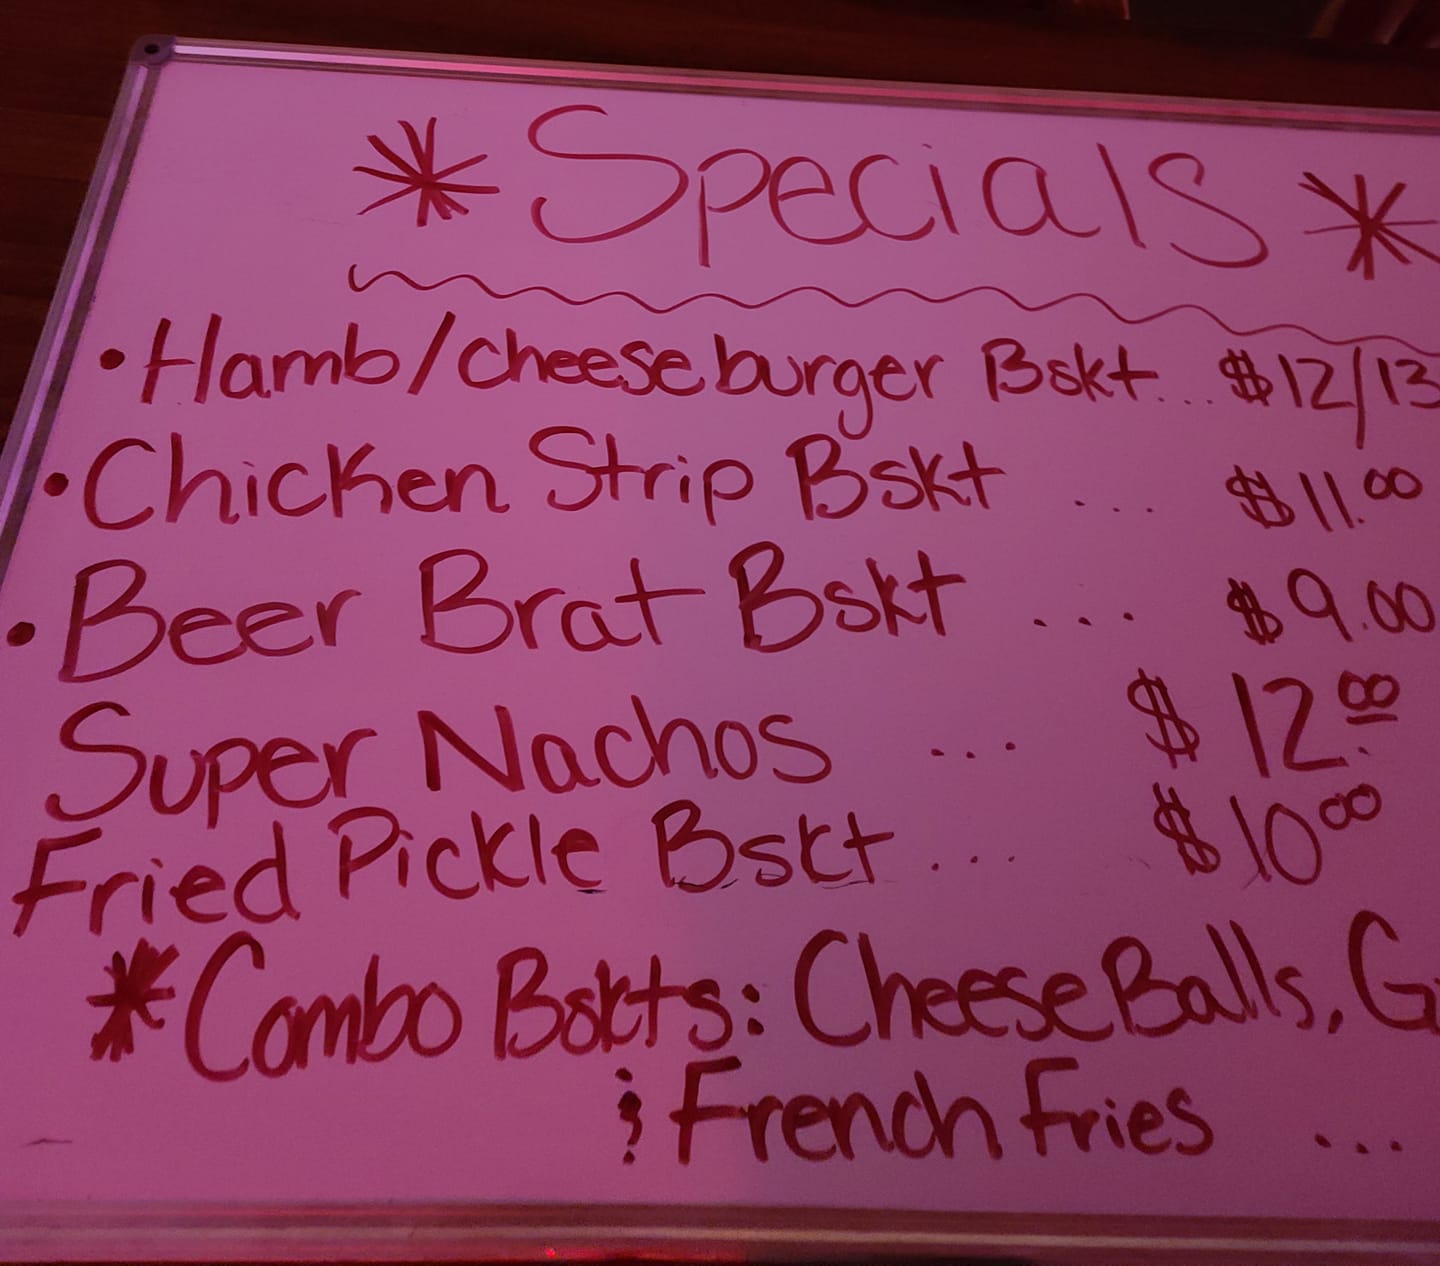 * Specials *
• Hamb/cheeseburger Bskt... $12/13
• Chicken Strip Bskt ... $11.00
• Beer Brat Bskt ... $9.00
Super Nachos ... $12.00
Fried Pickle Bskt ... $10.00
* Combo Bskts: Cheese Balls, G
& French Fries ...